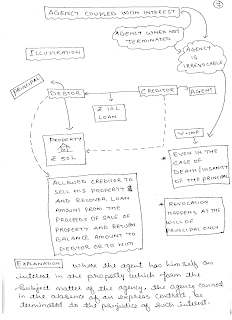 AGENCY COUPLED WITH INTEREST
AGENCY WHEN NOT
TERMINATED
AGENCY
IS
IRREVOCABLE
ILLUSTRATION
PRINCIPAL
DEBTOR
CREDITOR
AGENT
₹ 10 L
LOAN
PROPERTY
₹ 50 L
EVEN IN THE
CASE OF
DEATH / INSANITY
OF THE PRINCIPAL
ALLOWED CREDITOR TO
SELL HIS PROPERTY &
AND RECOVER LOAN
AMOUNT FROM THE
PROCEEDS OF SALE OF
PROPERTY AND RETURN
BALANCE AMOUNT TO
DEBTOR OR TO HIM
REVOCATION
HAPPENS AT THE
WILL OF
PRINCIPAL ONLY
EXPLANATION Where the agent has himself an
interest in the property which form the
subject matter of the agency, the agency cannot
in the absence of an express contract, be
terminated to the prejudice of such interest.